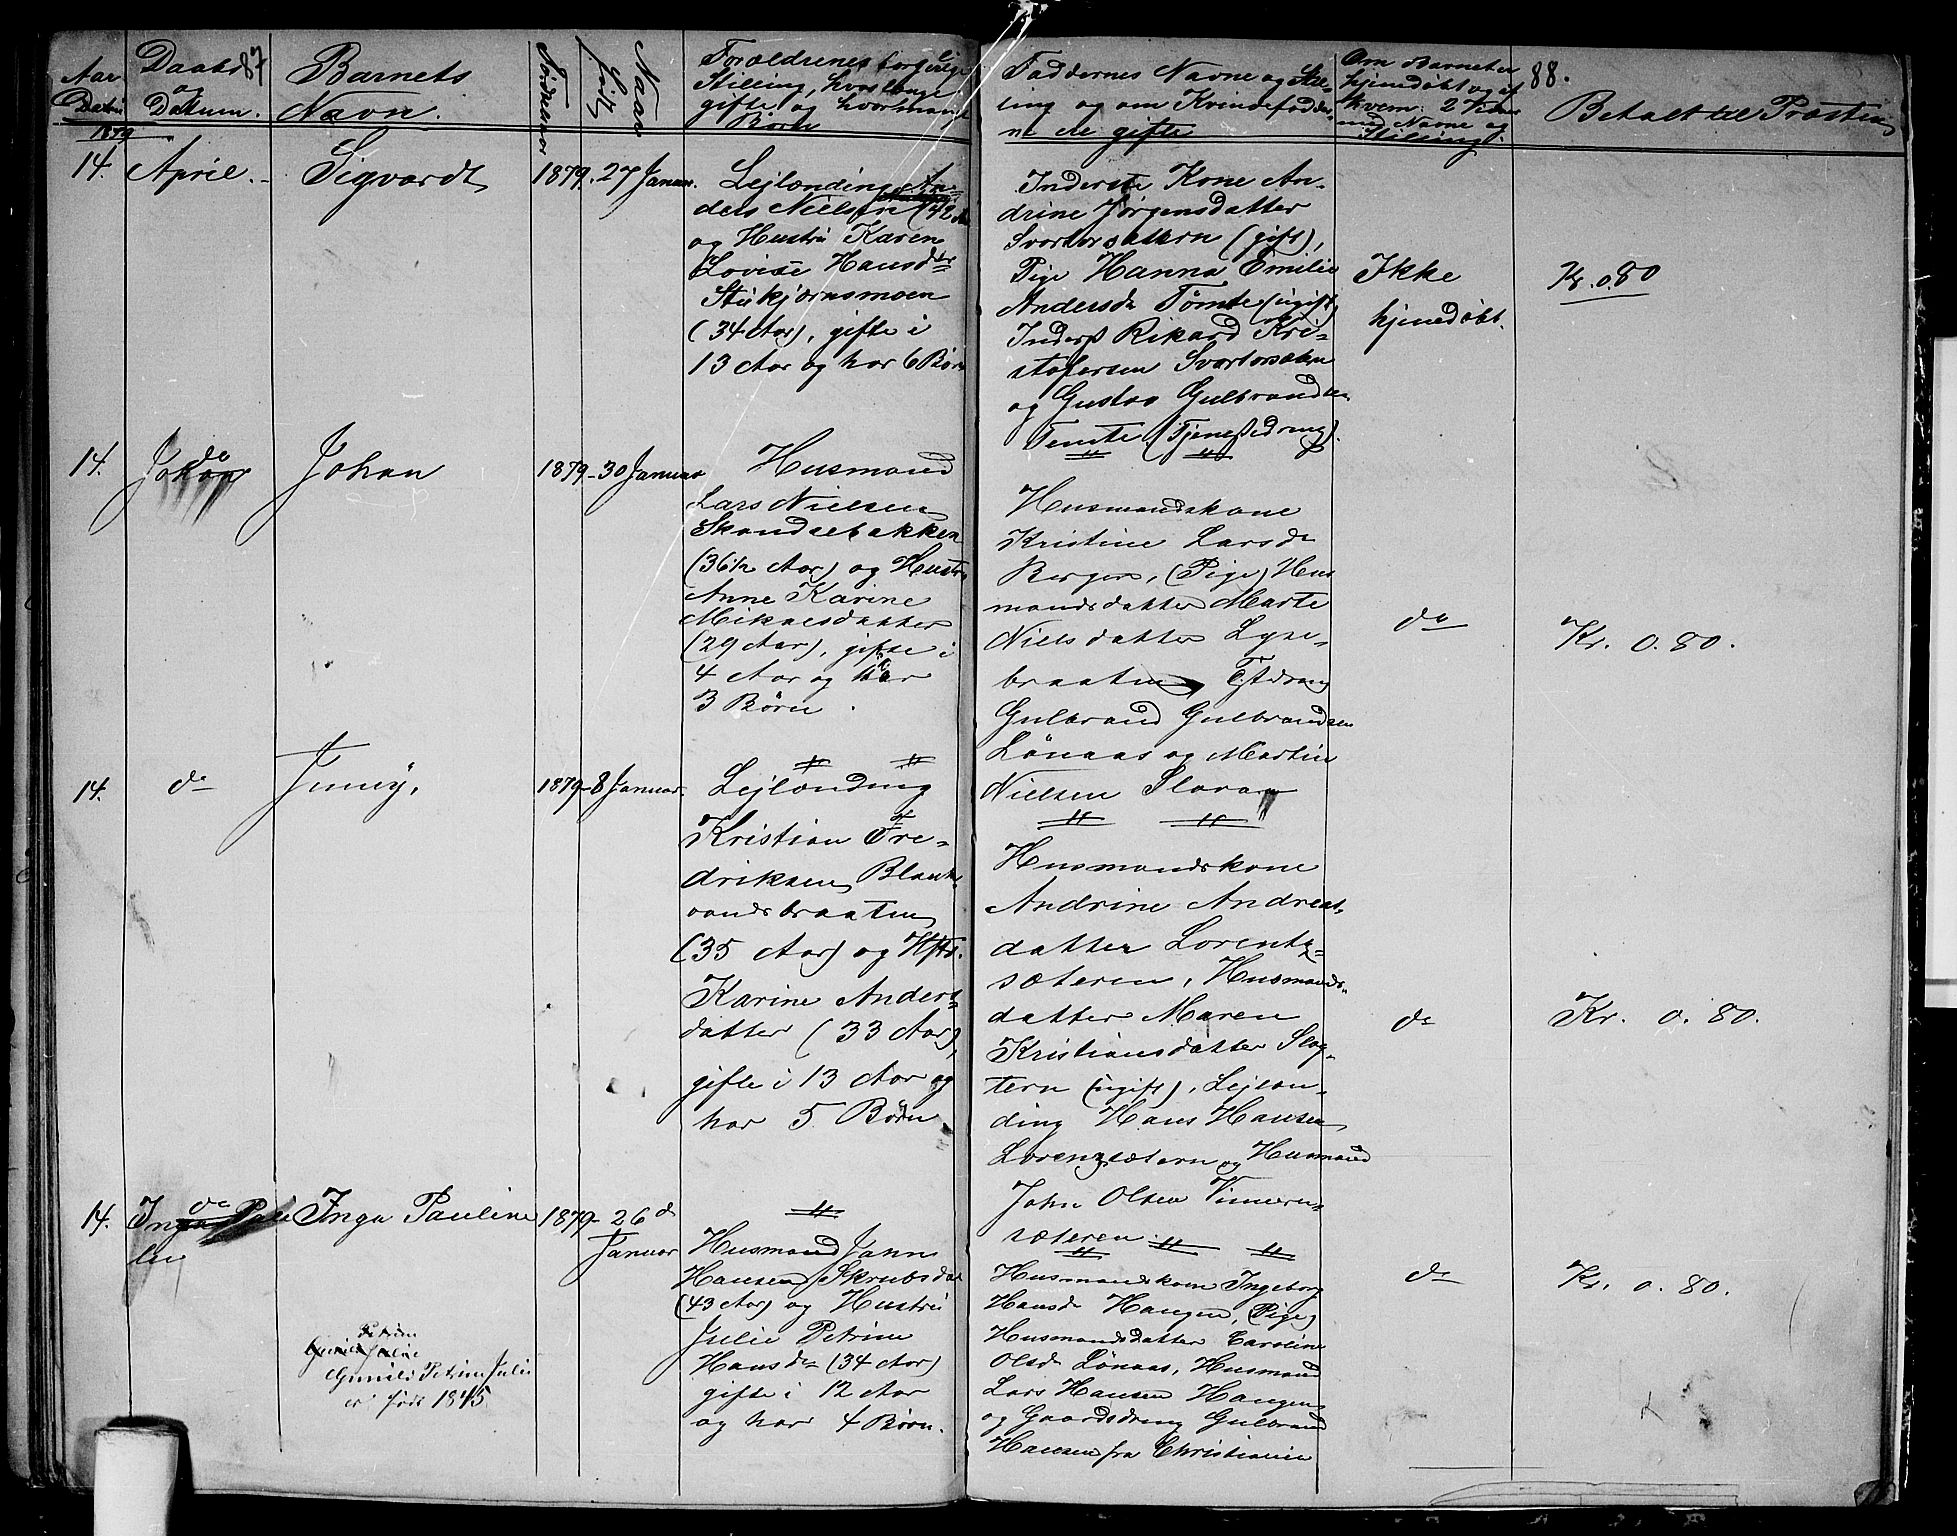 87
88.
Aar
Datum
1879
Daabs
og
Datum.
Barnets
Navn.
Naar
født
Forældrenes borgerlige
Stilling, hvor længe
gifte og hvormange
Børn
Faddernes Navne og Stil-
ling og om Kvindefadder
ne ere gifte
Om Barnet er
hjemdøbt og af
hvem. 2 Vidner
med Navne og
Stilling.
Betalt til Præsten
14.
April.
Sigvardt
1879. 27 Januar.
Lejlænding An-
ders Nielsen (42
og Hustru Karen
Lovise Hansdtr
Stikjærnsmoen
(34 Aar), gifte i
13 Aar og har 6 Børn
Inderste Kone An-
drine Jørgensdatter
Svartorsætern (gift),
Pige Hanna Emilie
Andersda Tømte (ugift)
Inderst Rikard Kri-
stofersen Svartorsætern
og Gustav Gulbrandsen
Temte (Tjenestedreng).
Ikke
hjemedøbt.
Kr. 0.80
14.
do
Johan
1879 - 30 Januar
Husmand
Lars Nielsen
Skandsebakken
(36½ Aar) og Hustru
Anne Karine
Mikaelsdatter
(29 Aar), gifte i
4 Aar og har
3 Børn.
Husmandskone
Kristine Larsda
Bergen, (Pige) Hus
mandsdatter Marte
Nielsdatter Lyse-
braaten, Tjstdreng
Gulbrand Gulbrandsen
Lönaas og Martin
Nielsen Slaraa
do
Kr. 0.80.
14.
do
Jenny,
1879 - 8 Januar.
Lejlænding
Kristian Fre-
driksen Blank-
vandsbraaten
(35 Aar) og Hstr.
Karine Anders-
datter (33 Aar),
gifte i 13 Aar og
har 5 Børn.
Husmandskone
Andrine Andreas-
datter Lorentz-
sæteren, Husmands-
datter Maren
Kristiansdatter Slag-
tern (ugift), Lejlæn-
ding Hans Hansen
Lorenzsætern og Husmand
John Olsen Vimeren-
sæteren.
do
Kr. 0.80.
14.
do
Inga Pauline
1879 - 26 d
Januar
Husmand Jahn
Hansen Skrubsdal
(43 Aar) og Hustru
Julie Petrine
Hansda (34 Aar)
gifte i 12 Aar
og har 4 Børn.
Husmandskone Ingeborg
Hansda Haugen, (Pige)
Husmandsdatter Caroline
Olsda Lönaas, Husmand
Lars Hansen Haugen
og Gaardsdreng Gulbrand
Hansen fra Christiania
do
Kr. 0.80.
Petrine
Gunild Julie
Gunild Petrine Julie
er født 1845